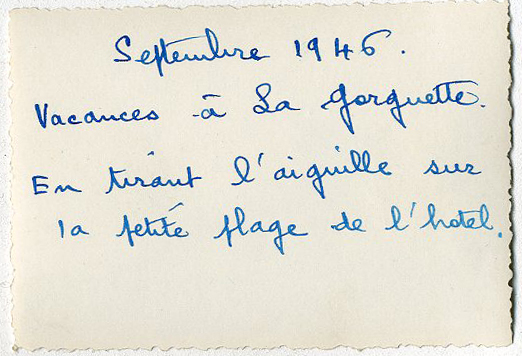 Septembre 1946.
Vacances à La Gorguette.
En tirant l'aiguille sur
la petite plage de l'hotel.